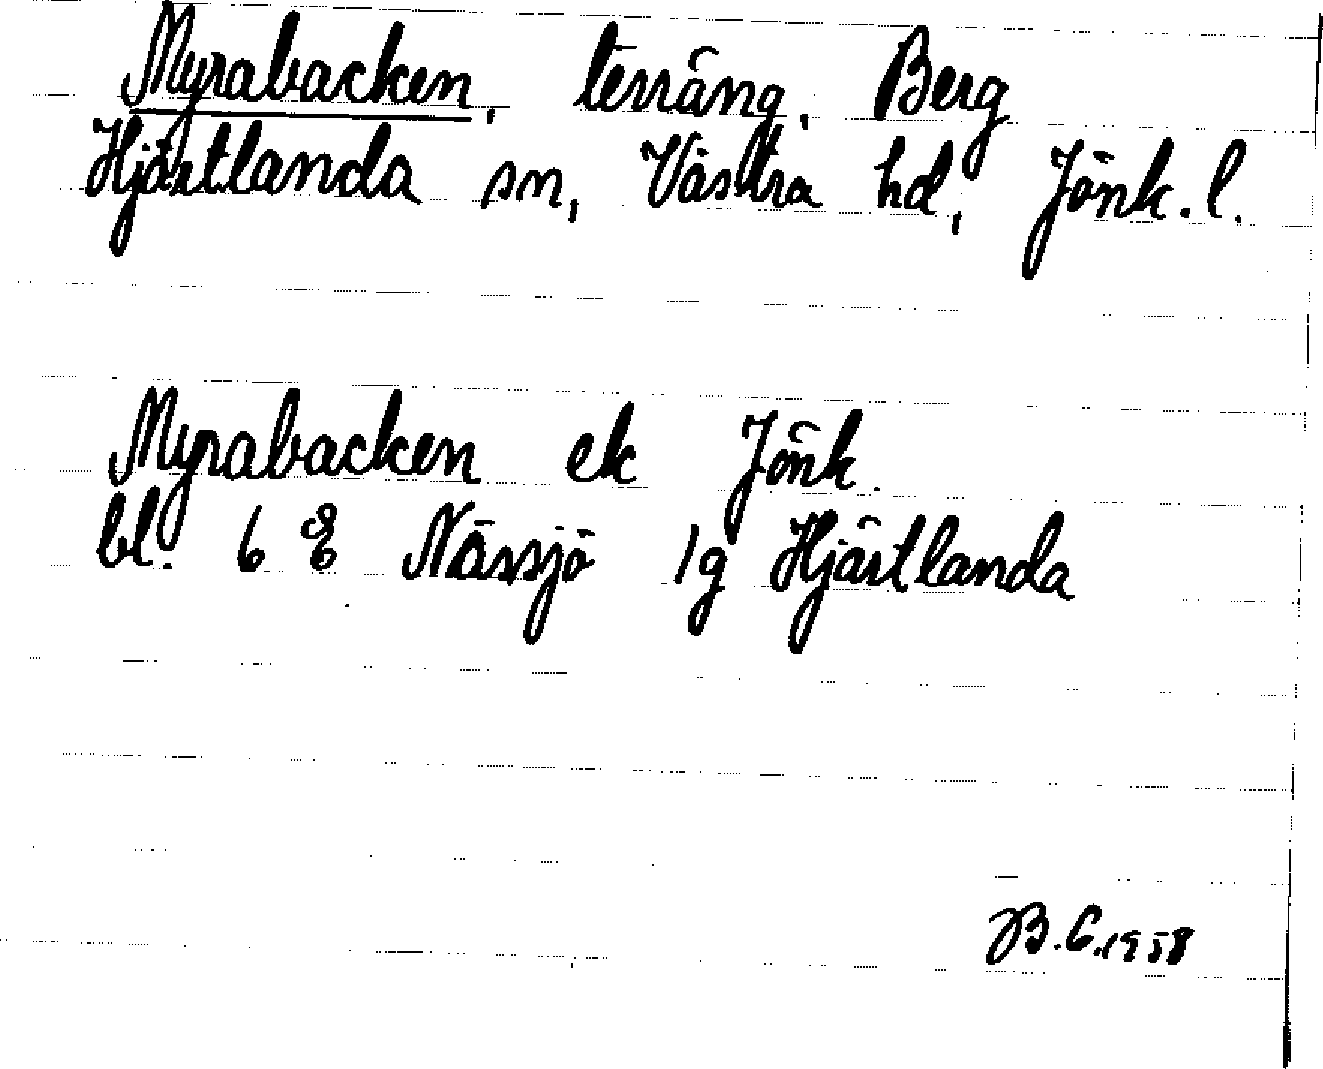 Myrabacken, terräng, Berg
Hjärtlanda sn, Västra hd, Jönk. l.
Myrabacken ek Jönk.
bl. 6 E Nässjö 1g Hjärtlanda
B.C. 1958